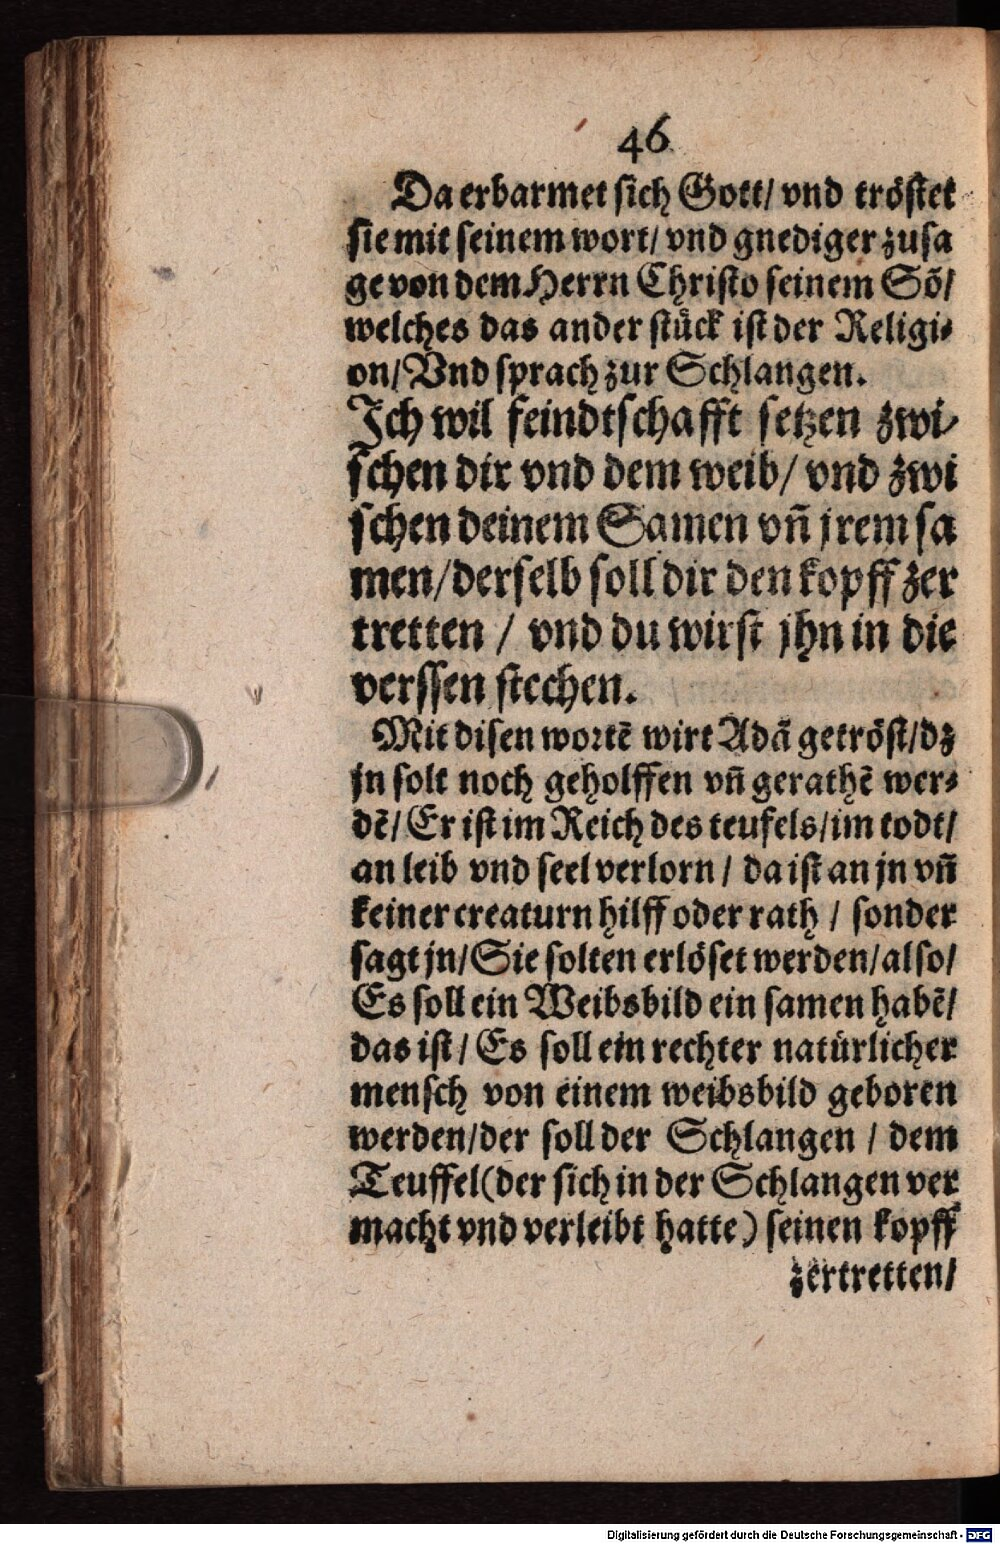 46
Da erbarmet sich Gott/ vnd tröstet
sie mit seinem wort/ vnd gnediger zusa
ge von dem Herrn Christo seinem Sõ/
welches das ander stück ist der Religi-
on/ Vnd sprach zur Schlangen.
Ich wil feindtschafft setzen zwi-
schen dir vnd dem weib/ vnd zwi
schen deinem Samen vñ jrem sa
men/derselb soll dir den kopff zer
tretten / vnd du wirst jhn in die
verssen stechen.
Mit disen wortẽ wirt Adã getröst/dz
jn solt noch geholffen vñ gerathẽ wer-
dẽ/ Er ist im Reich des teufels/im todt/
an leib vnd seel verlorn / da ist an jn vñ
keiner creaturn hilff oder rath / sonder
sagt jn/ Sie solten erlöset werden/also/
Es soll ein Weibsbild ein samen habẽ/
das ist/ Es soll ein rechter natürlicher
mensch von einem weibsbild geboren
werden/der soll der Schlangen / dem
Teuffel(der sich in der Schlangen ver
macht vnd verleibt hatte) seinen kopff
zertretten/
Digitalisierung gefördert durch die Deutsche Forschungsgemeinschaft - DFG